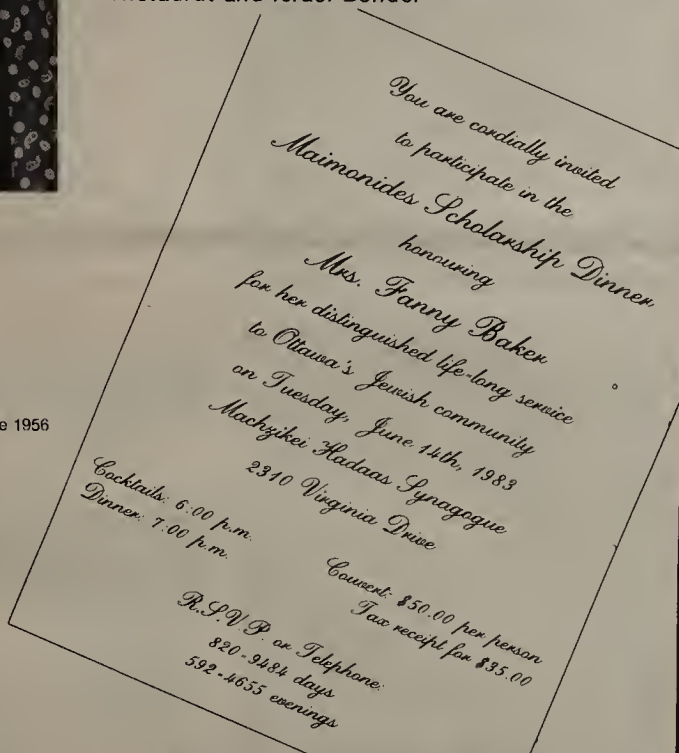 and Israel Bender
e 1956
You are cordially invited
to participate in the
Maimonides Scholarship Dinner
honouring
Mrs. Fanny Baker
for her distinguished life-long service
to Ottawa's Jewish community
on Tuesday, June 14th, 1983
Machzikei Hadaas Synagogue
2310 Virginia Drive
Cocktails: 6:00 p.m.
Dinner: 7:00 p.m.
Couvert: $50.00 per person
Tax receipt for $35.00
R.S.V.P. or Telephone:
820-9484 days
592-4655 evenings